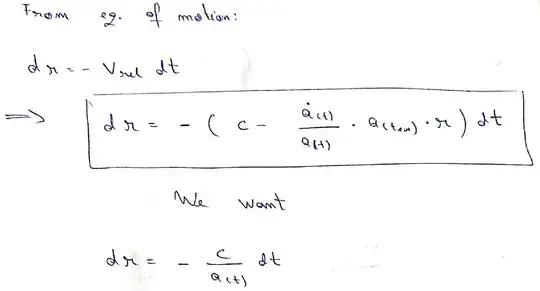 From eq. of motion:
dr = - Vrel dt
⇒ dr = - ( c - ȧ(t)/a(t) · a(tem) · r ) dt
We want
dr = - c/a(t) dt